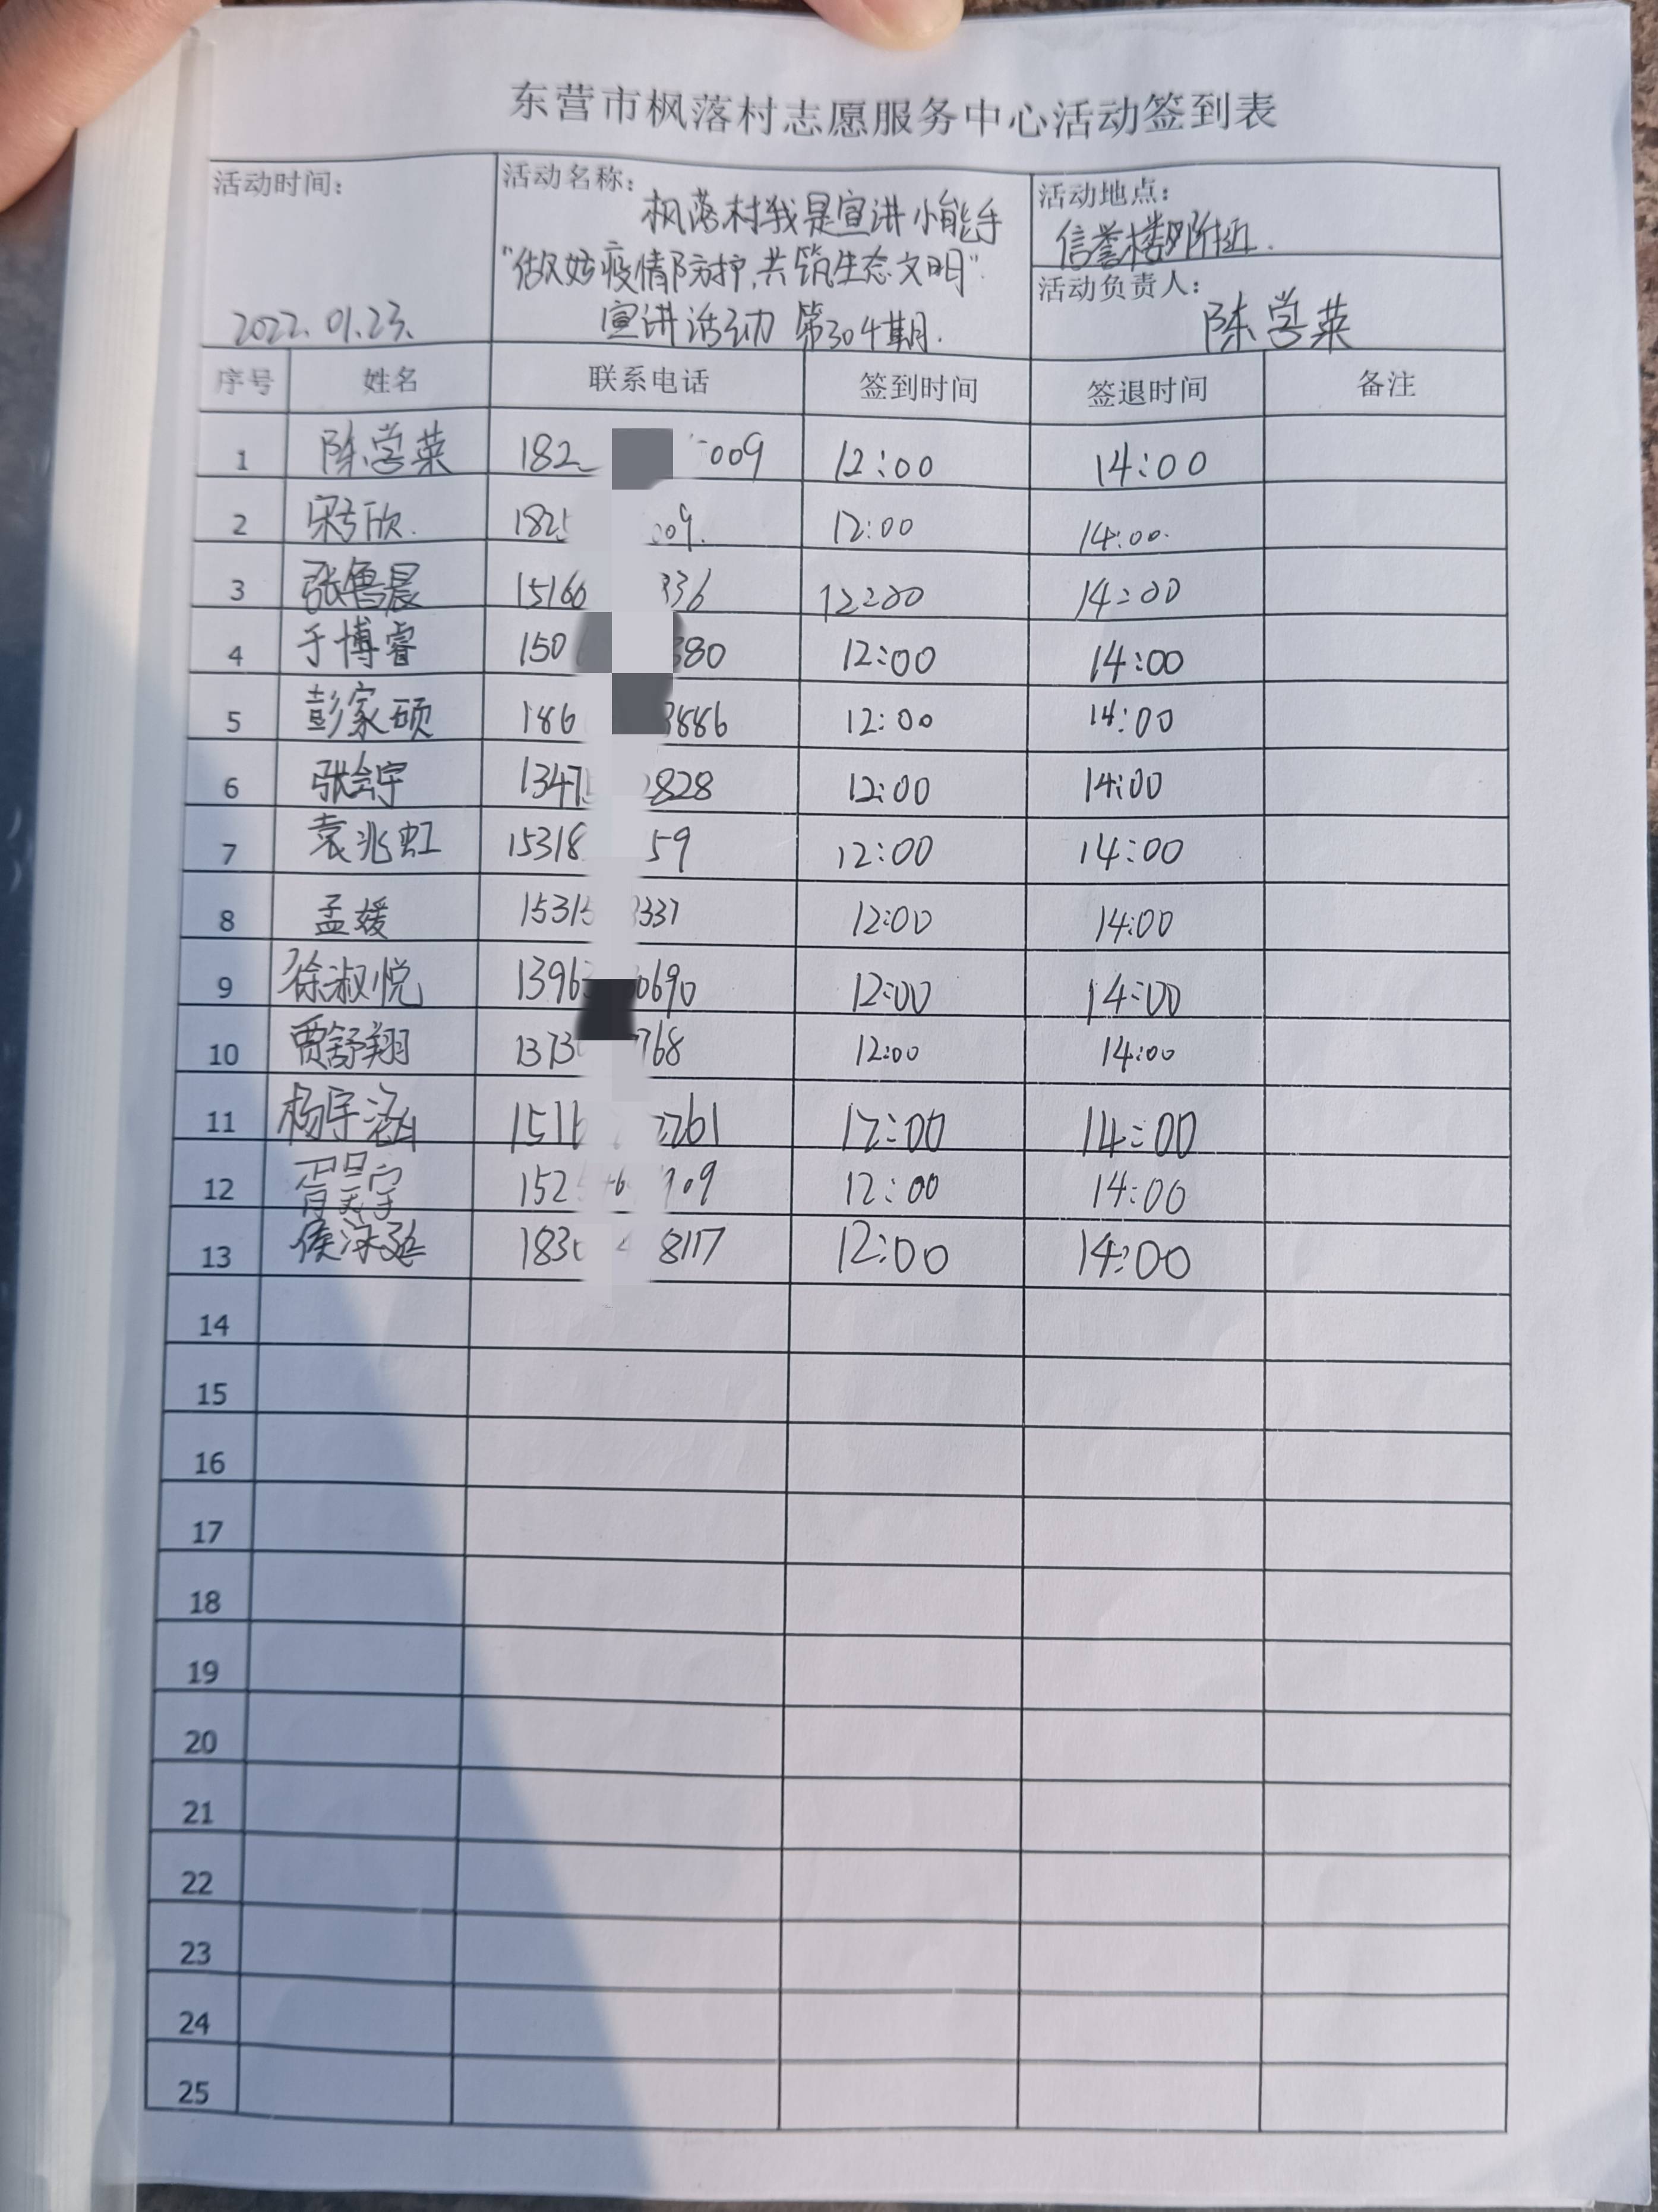 东营市枫落村志愿服务中心活动签到表
活动时间:
2022.01.23.
活动名称:
枫落村我是宣讲小能手
"做好疫情防护,共筑生态文明"
宣讲活动 第304期.
活动地点:
信誉楼附近.
活动负责人:
陈学英
序号 姓名 联系电话 签到时间 签退时间 备注
1 陈学英 182 009 12:00 14:00
2 182 09. 12:00 14:00.
3 张鲁晨 15166 336 12:00 14:00
4 于博睿 150 380 12:00 14:00
5 彭家硕 186 8886 12:00 14:00
6 1347 2828 12:00 14:00
7 袁兆虹 15318 59 12:00 14:00
8 孟媛 15315 3337 12:00 14:00
9 徐淑悦 1396 0690 12:00 14:00
10 贾舒翔 1373 768 12:00 14:00
11 杨宇涵 1516 2761 12:00 14:00
12 胥昊宇 152 109 12:00 14:00
13 183 8117 12:00 14:00
14
15
16
17
18
19
20
21
22
23
24
25